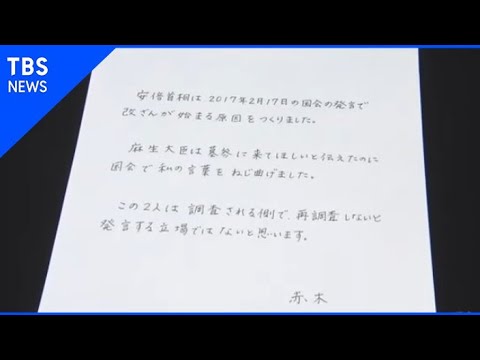 TBS
NEWS
安倍首相は2017年2月17日の国会の発言で
改ざんが始まる原因をつくりました。
麻生大臣は墓参に来てほしいと伝えたのに
国会で私の言葉をねじ曲げました。
この2人は調査される側で、再調査しないと
発言する立場ではないと思います。
赤木